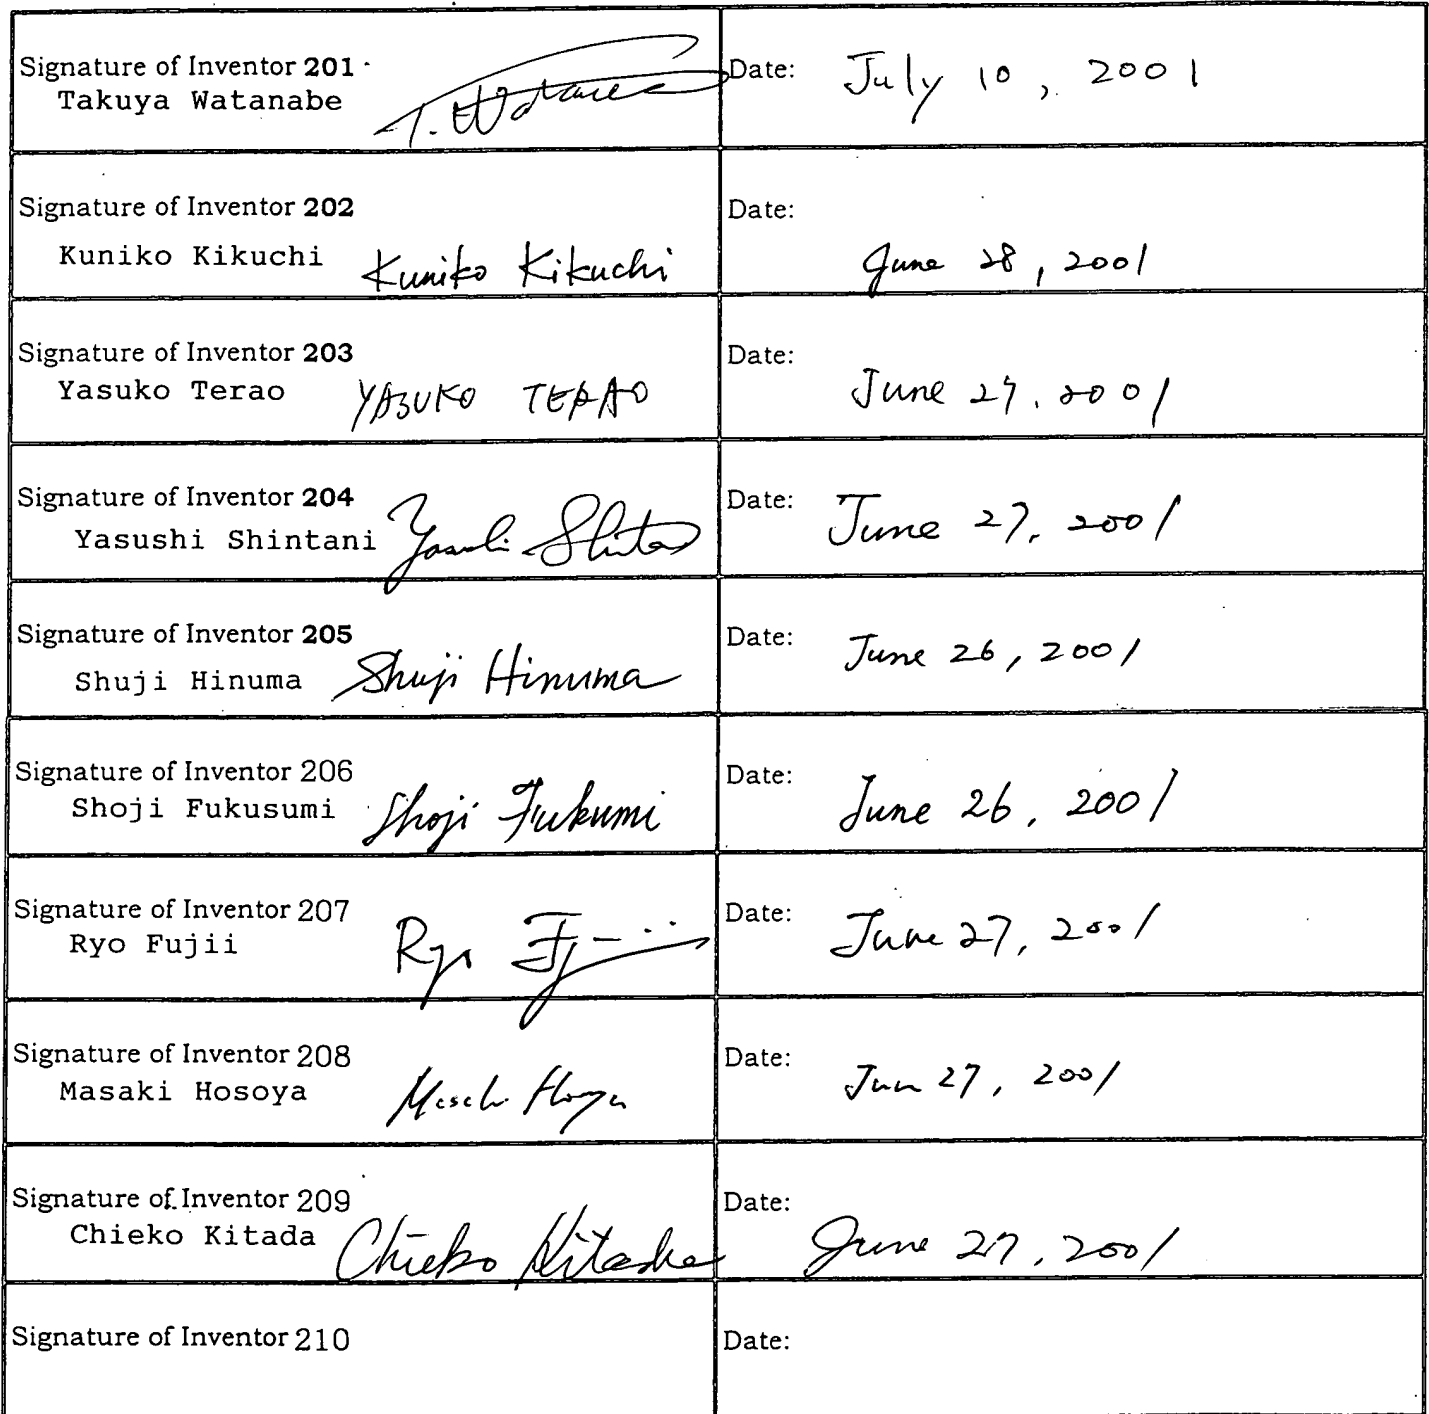 Signature of Inventor 201
Takuya Watanabe
T. Watanabe
Date: July 10, 2001
Signature of Inventor 202
Kuniko Kikuchi Kuniko Kikuchi
Date:
June 28, 2001
Signature of Inventor 203
Yasuko Terao YASUKO TERAO
Date:
June 27, 2001
Signature of Inventor 204
Yasushi Shintani
Date: June 27, 2001
Signature of Inventor 205
Shuji Hinuma Shuji Hinuma
Date: June 26, 2001
Signature of Inventor 206
Shoji Fukusumi Shoji Fukumi
Date: June 26, 2001
Signature of Inventor 207
Ryo Fujii Ryo
Date: June 27, 2001
Signature of Inventor 208
Masaki Hosoya
Date: Jun 27, 2001
Signature of Inventor 209
Chieko Kitada Chieko Kitada
Date: June 27, 2001
Signature of Inventor 210
Date: